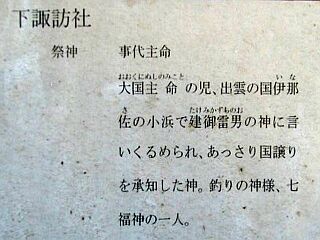 下諏訪社
祭神 事代主命
おおくにぬしのみこと いな
大国主命の児、出雲の国伊那
さ たけみかずちのお
佐の小浜で建御雷男の神に言
いくるめられ、あっさり国譲り
を承知した神。釣りの神様、七
福神の一人。